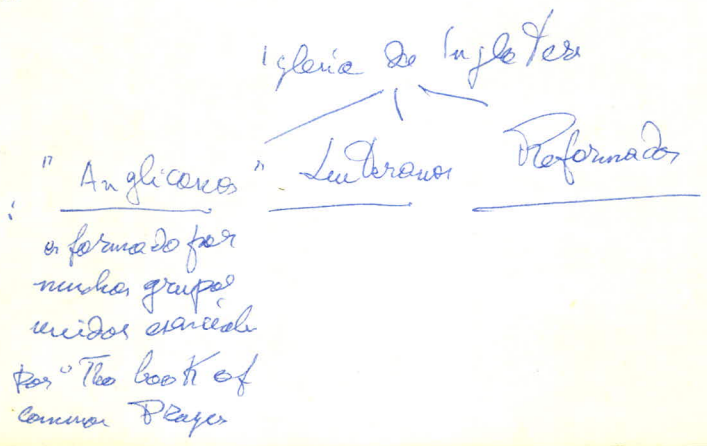 Iglesia de Inglaterra
"Anglicanos" Luteranos Reformados
es formado por
muchos grupos
unidos
por "The book of
common Prayer